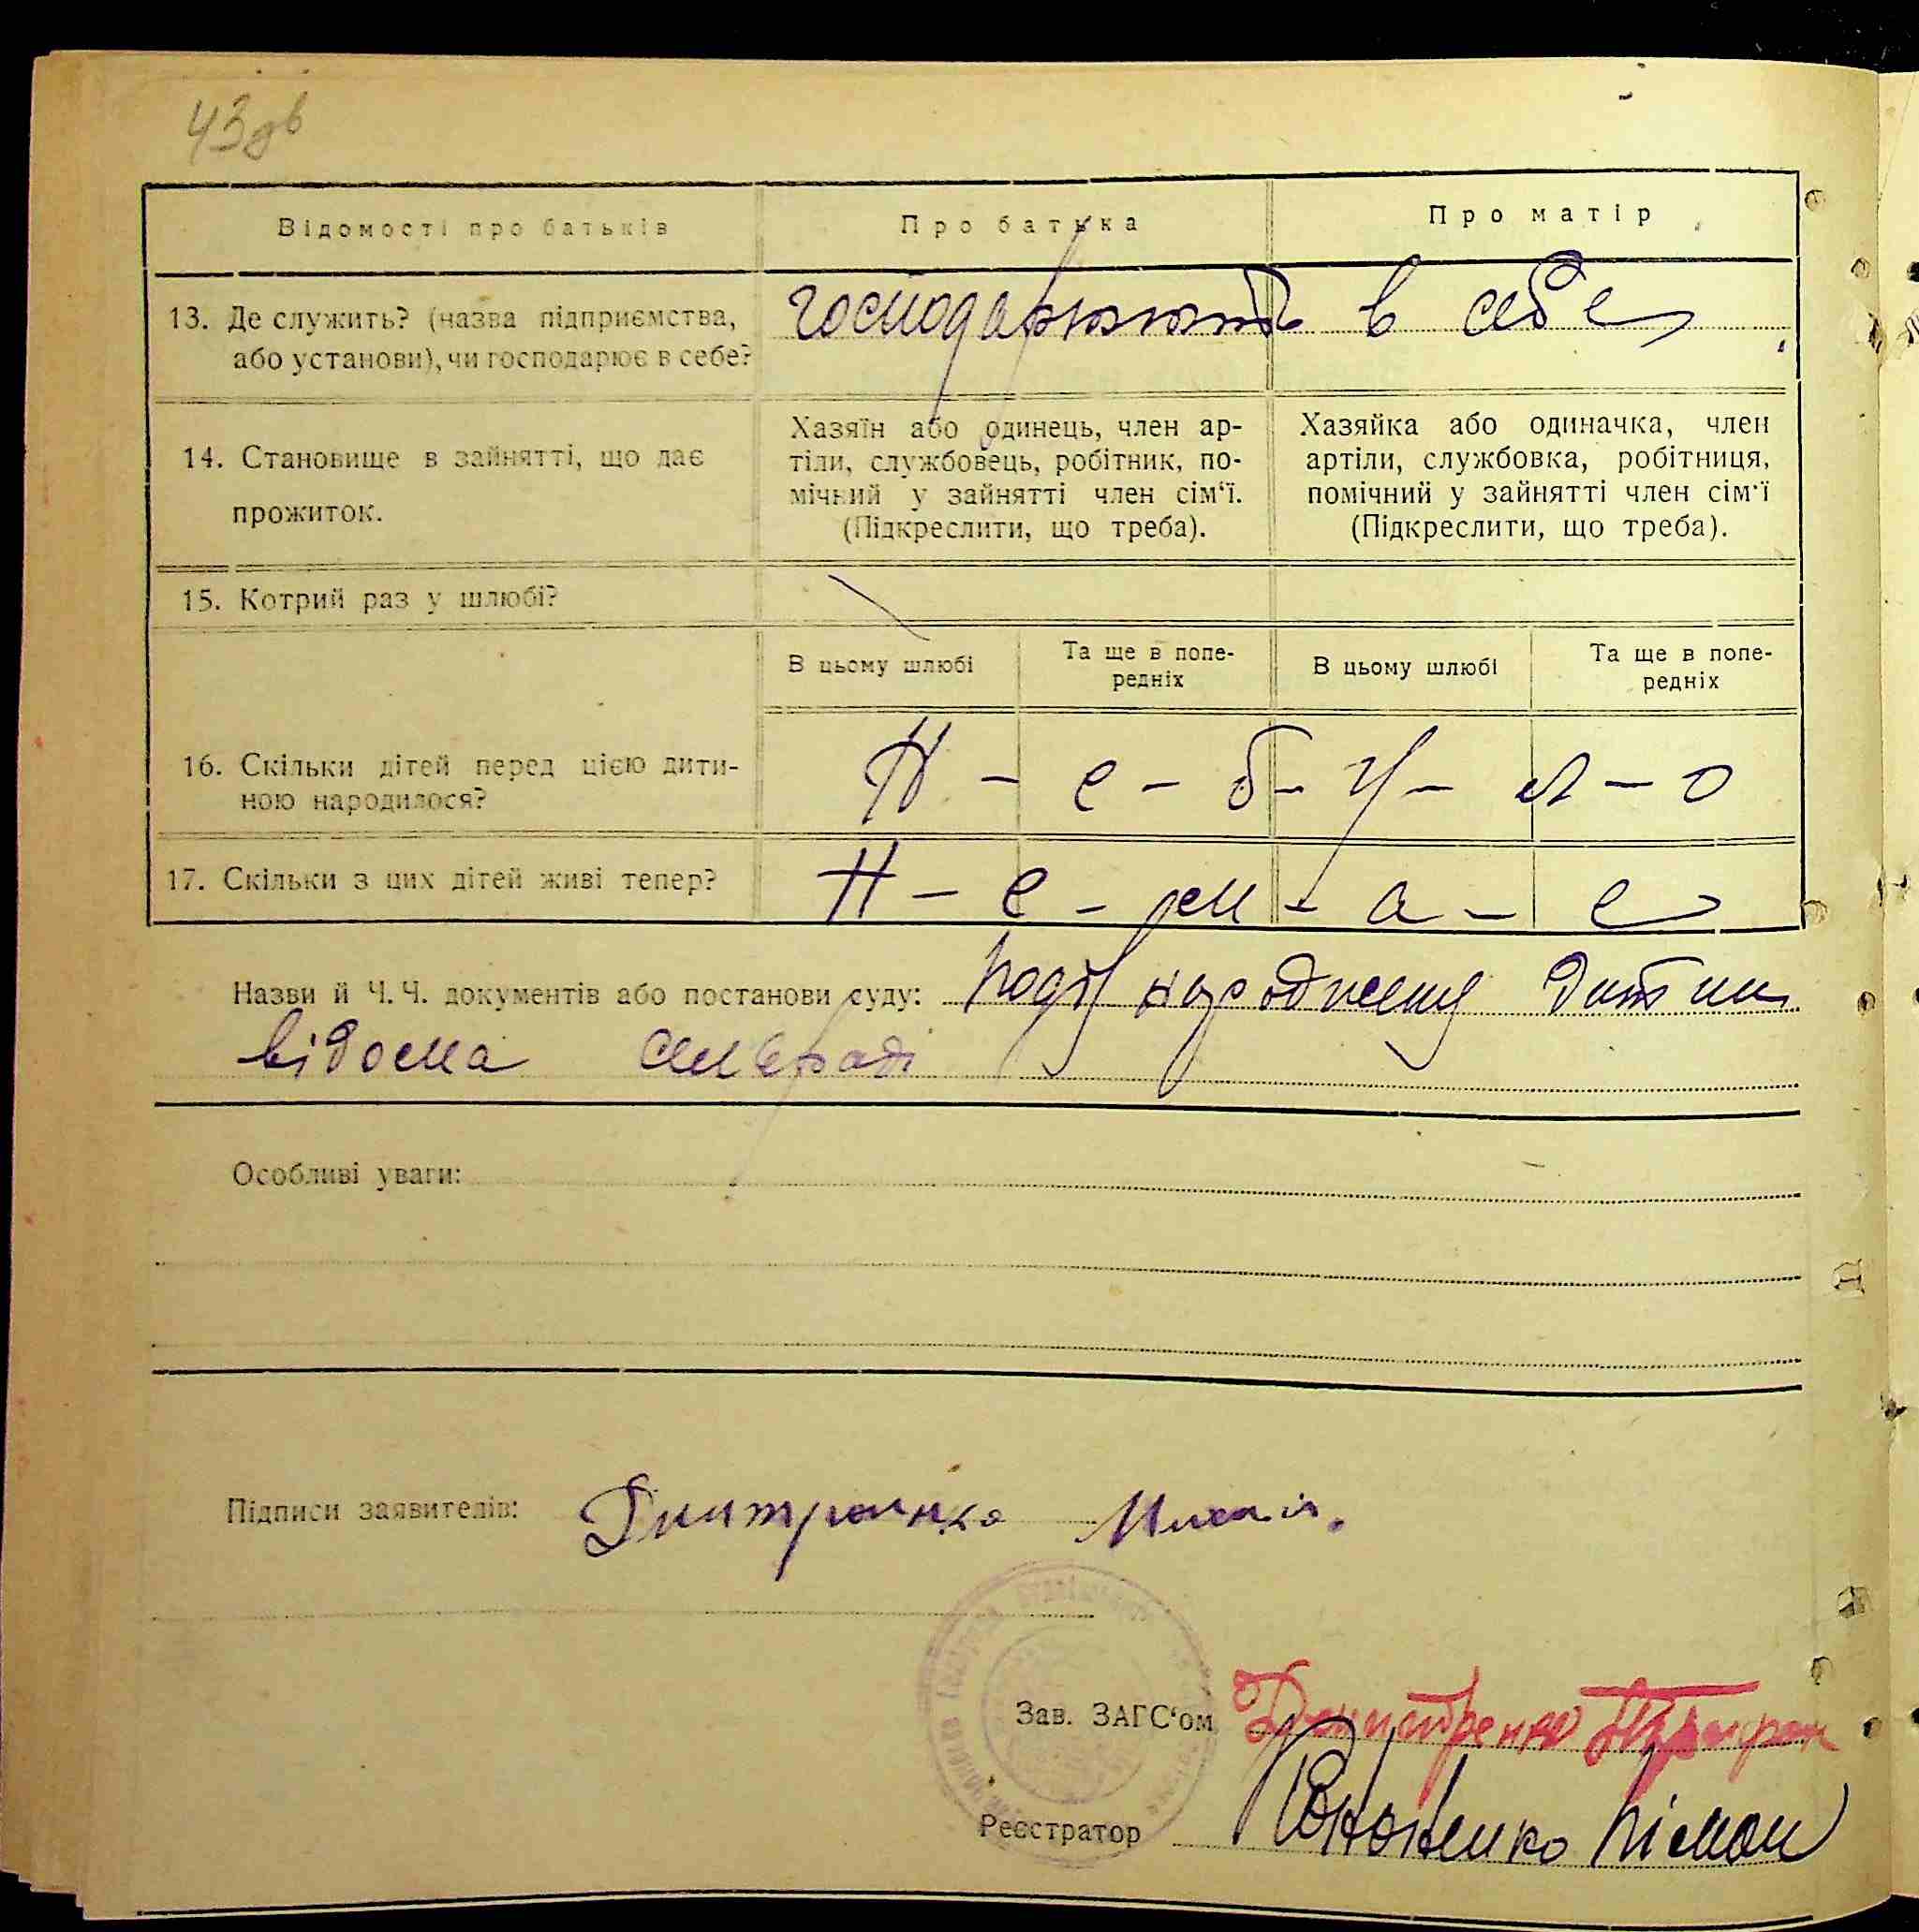 43зв
Відомості про батьків
Про батька
Про матір
13. Де служить? (назва підприємства,
або установи), чи господарює в себе?
господарюють в себе
14. Становище в зайнятті, що дає
прожиток.
Хазяїн або одинець, член ар-
тіли, службовець, робітник, по-
мічний у зайнятті член сім‘ї.
(Підкреслити, що треба).
Хазяйка або одиначка, член
артіли, службовка, робітниця,
помічний у зайнятті член сім‘ї
(Підкреслити, що треба).
15. Котрий раз у шлюбі?
В цьому шлюбі
Та ще в попе-
редніх
В цьому шлюбі
Та ще в попе-
редніх
16. Скільки дітей перед цією дити-
ною народилося?
Н - е - б - у - л - о
17. Скільки з цих дітей живі тепер?
Н - е - м - а - е
Назви й Ч. Ч. документів або постанови суду:
відома
Особливі уваги:
Підписи заявителів: Дмитренко Михаил.
Зав. ЗАГС‘ом Дмитренко
Реєстратор Кононенко